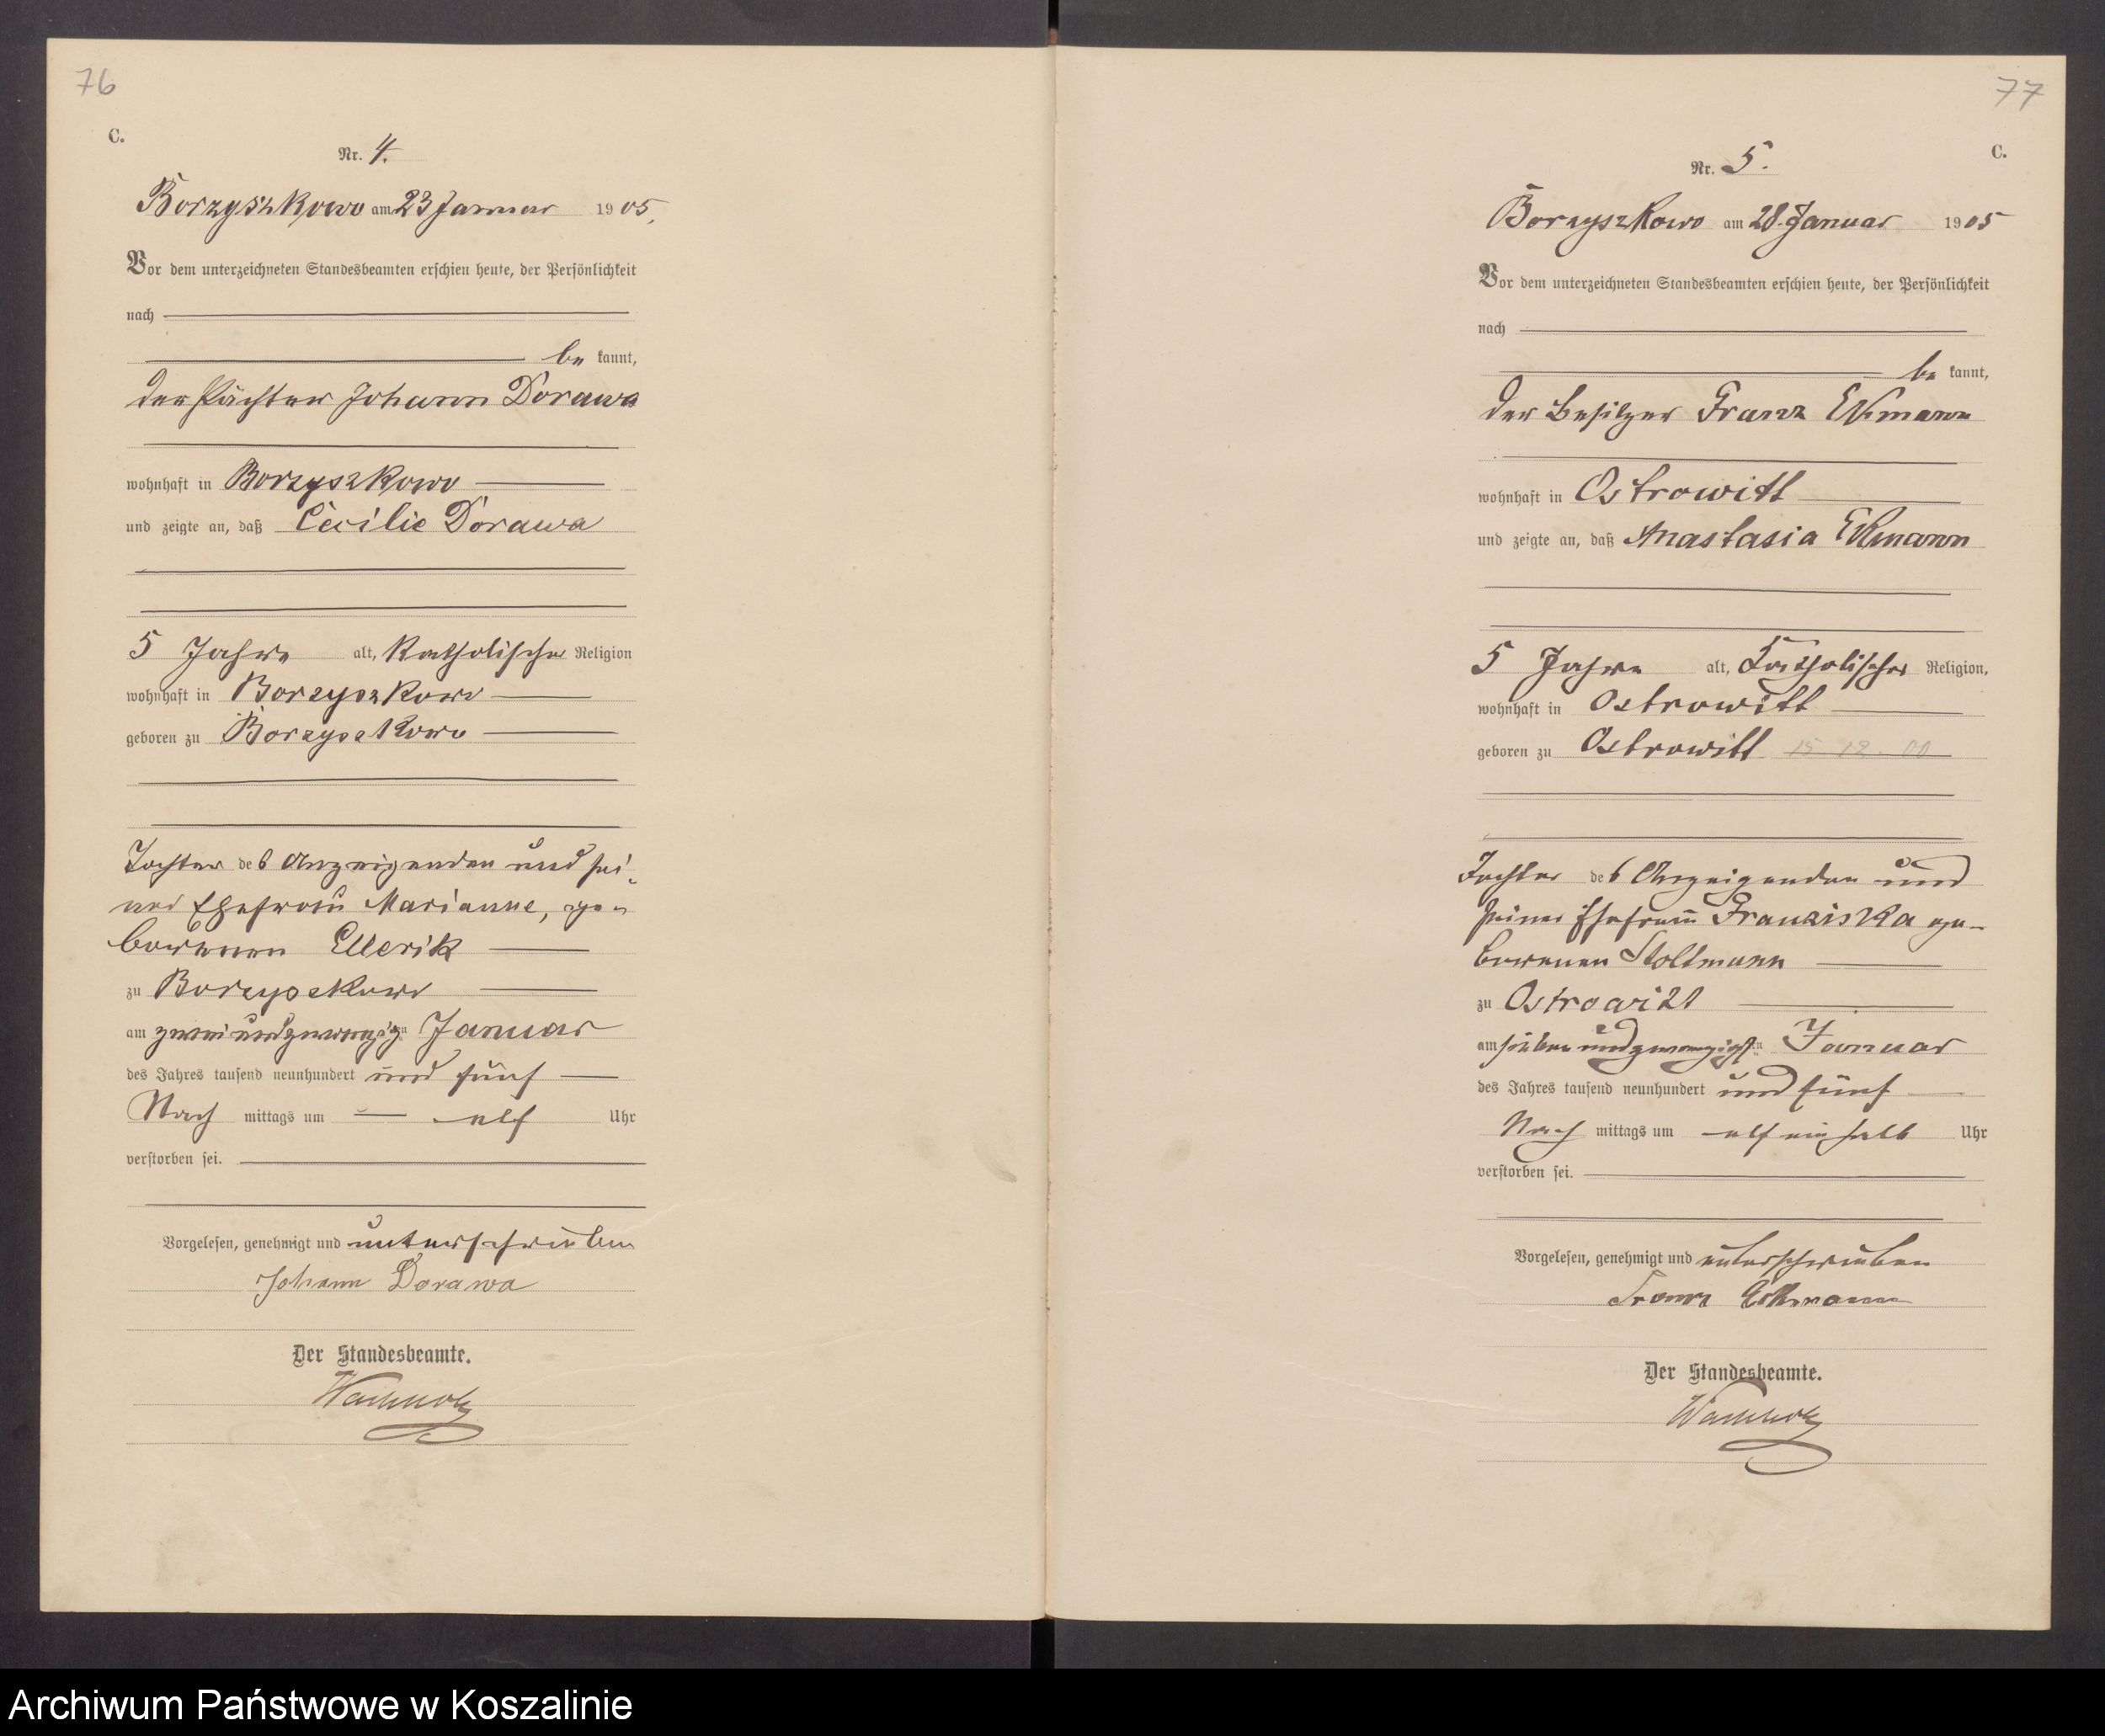 76
C.
Nr. 4.
Borzyszkowo am 23 Januar 1905,
Vor dem unterzeichneten Standesbeamten erschien heute, der Persönlichkeit
nach
be kannt,
der Pächter Johann Dorawa
wohnhaft in Borzyszkowo
und zeigte an, daß Cecilie Dorawa
5 Jahre alt, katholischer Religion
wohnhaft in Borzyszkowo
geboren zu Borzyszkowo
Tochter des Anzeigenden und sei-
ner Ehefrau Marianne, ge-
borenen Ellerik
zu Borzyszkowo
am zweiundzwanzigten Januar
des Jahres tausend neunhundert und fünf
Nach mittags um elf Uhr
verstorben sei.
Vorgelesen, genehmigt und unterschrieben
Johann Dorawa
Der Standesbeamte.
Wachholz
77
C.
Nr. 5.
Borzyszkowo am 28. Januar 1905
Vor dem unterzeichneten Standesbeamten erschien heute, der Persönlichkeit
nach
be kannt,
der Besitzer Franz Ekmann
wohnhaft in Ostrowitt
und zeigte an, daß Anastasia Ekmann
5 Jahre alt, katholischer Religion,
wohnhaft in Ostrowitt
geboren zu Ostrowitt 15 12. 00
Tochter des Anzeigenden und
seiner Ehefrau Franziska ge-
borenen Stoltmann
zu Ostrowitt
am siebenundzwanzigsten Januar
des Jahres tausend neunhundert und fünf
Nach mittags um elf ein halb Uhr
verstorben sei.
Vorgelesen, genehmigt und unterschrieben
Franz
Der Standesbeamte.
Wachholz
Archiwum Państwowe w Koszalinie